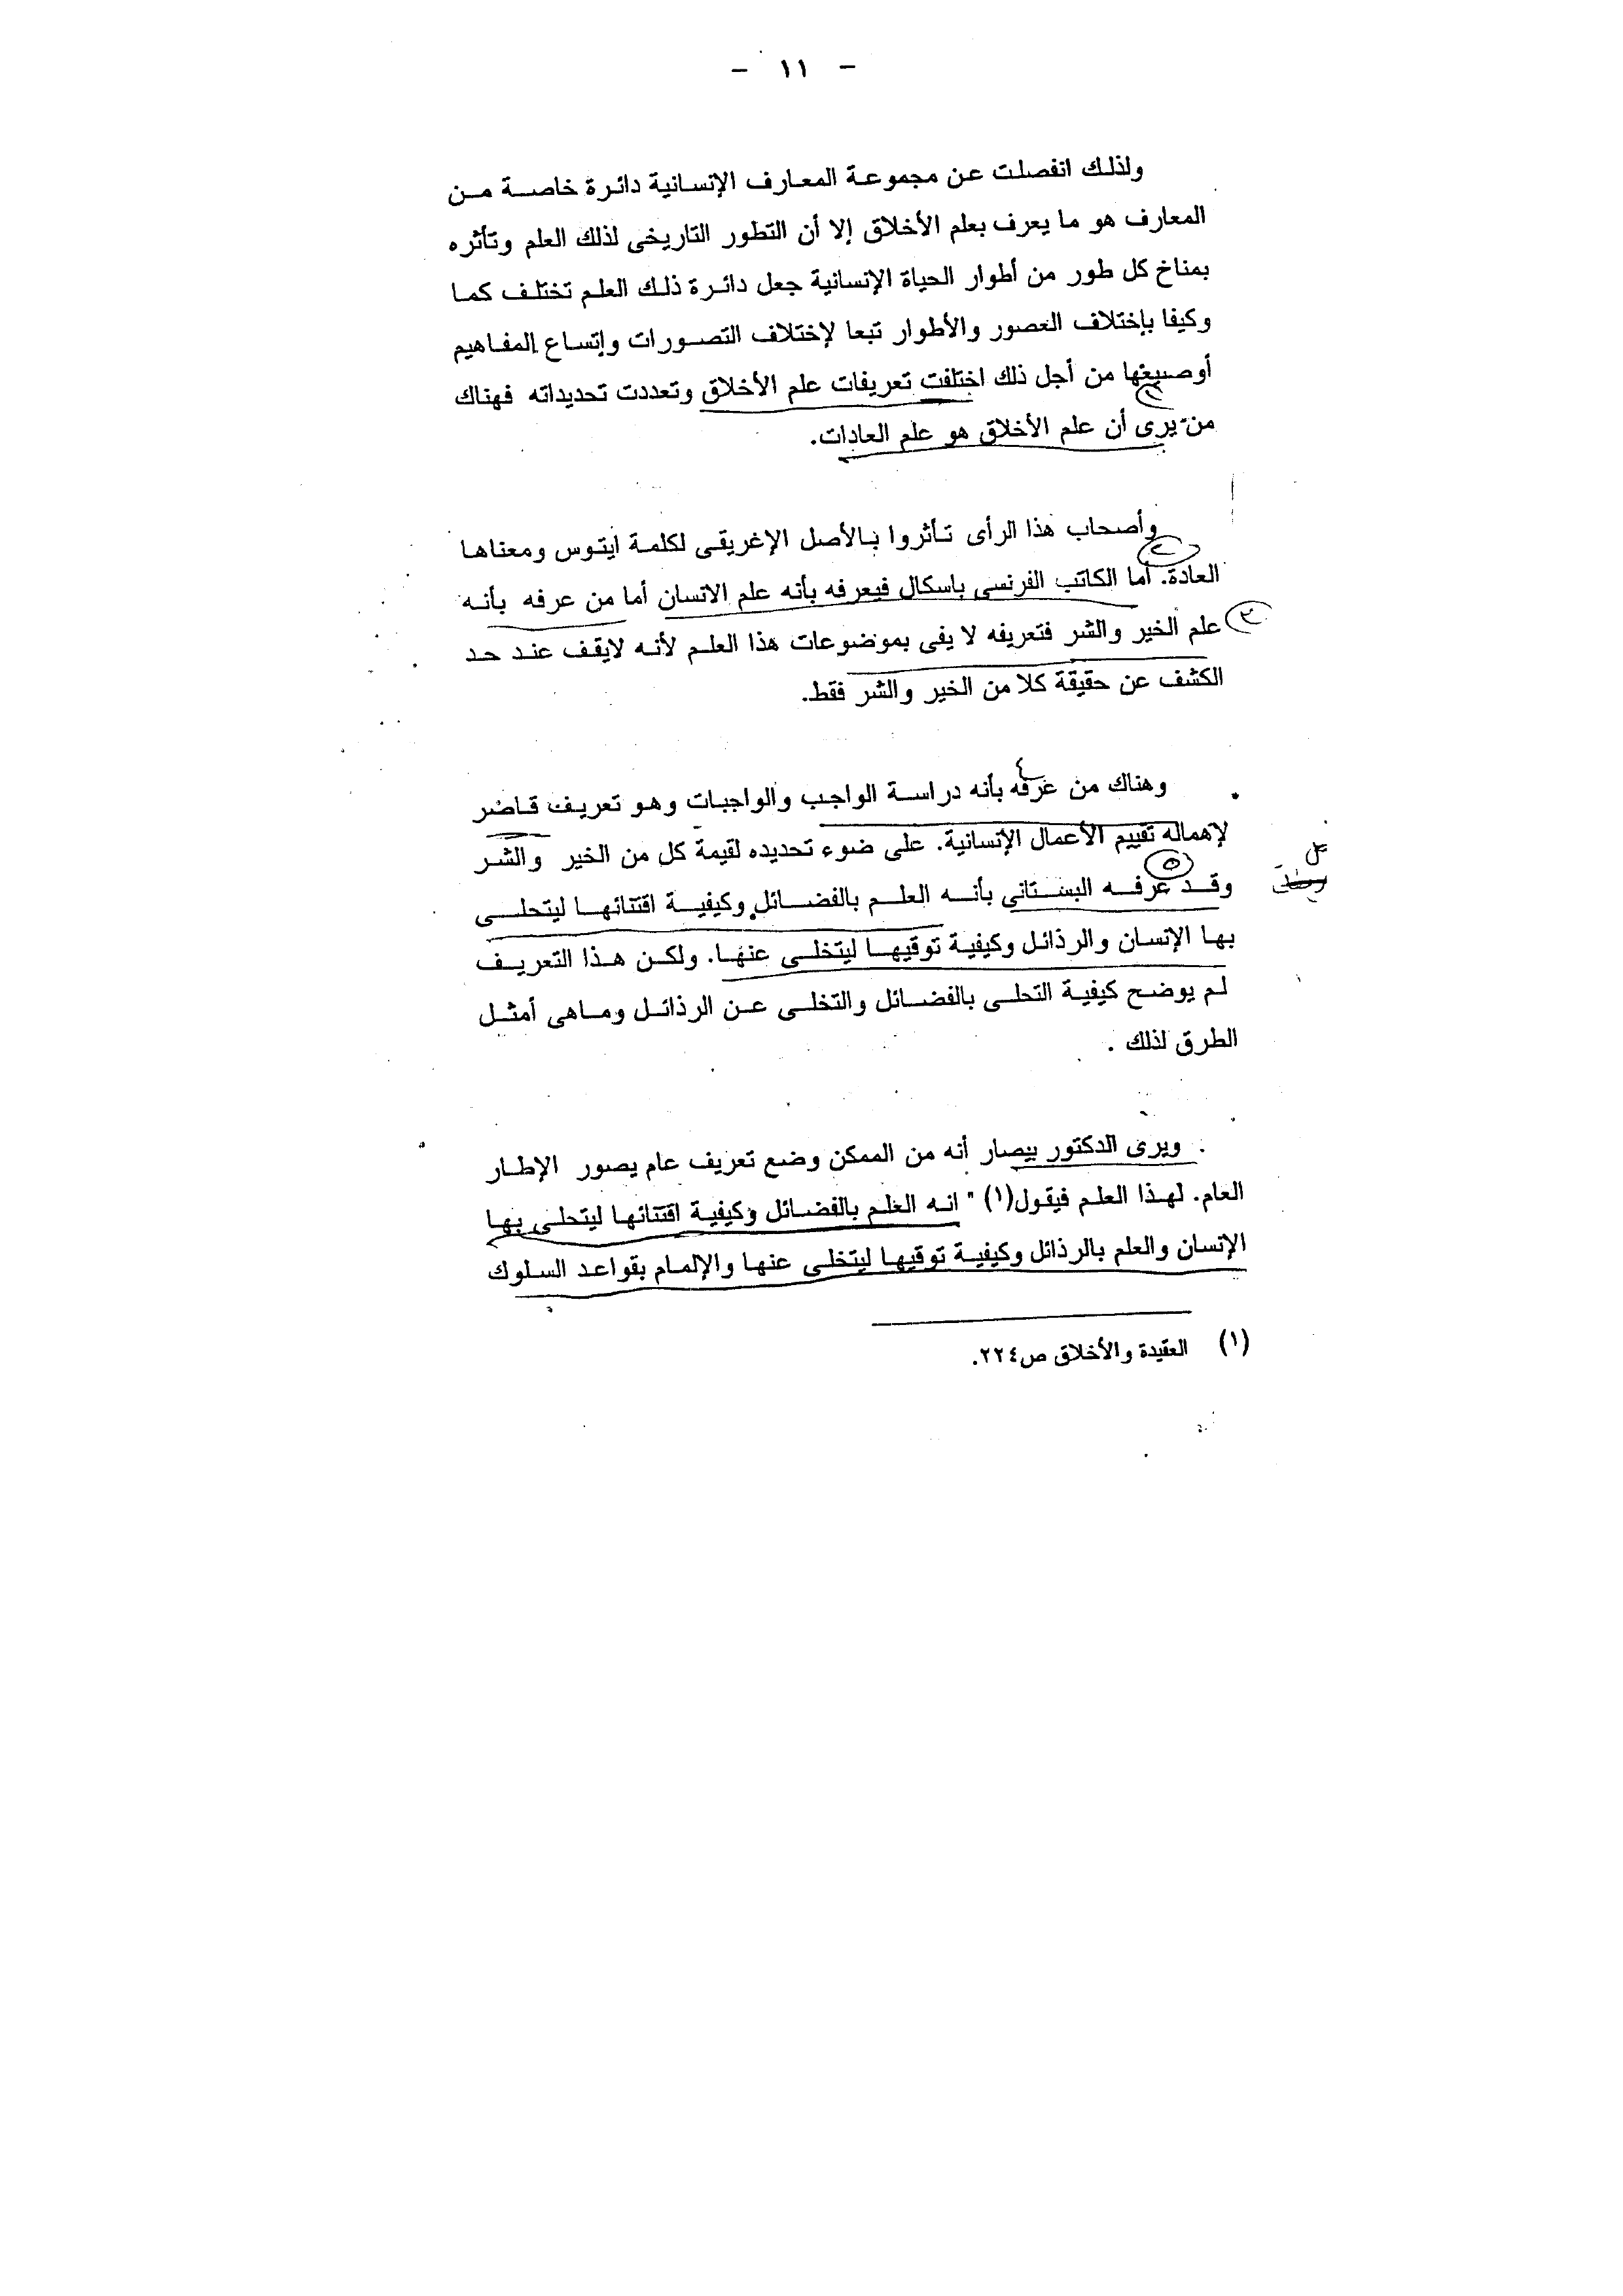 - ١١ -
ولذلك انفصلت عن مجموعة المعارف الإنسانية دائرة خاصة من
المعارف هو ما يعرف بعلم الأخلاق إلا أن التطور التاريخى لذلك العلم وتأثره
بمناخ كل طور من أطوار الحياة الإنسانية جعل دائرة ذلك العلم تختلف كما
وكيفا بإختلاف العصور والأطوار تبعا لإختلاف التصورات وإتساع المفاهيم
أوضيقها من أجل ذلك اختلفت تعريفات علم الأخلاق وتعددت تحديداته فهناك
من يرى أن علم الأخلاق هو علم العادات.
وأصحاب هذا الرأى تأثروا بالأصل الإغريقى لكلمة ايتوس ومعناها
٢
العادة. أما الكاتب الفرنسى باسكال فيعرفه بأنه علم الانسان أما من عرفه بأنه
٣ علم الخير والشر فتعريفه لا يفى بموضوعات هذا العلم لأنه لايقف عند حد
الكشف عن حقيقة كلا من الخير والشر فقط.
٤
وهناك من عرفه بأنه دراسة الواجب والواجبات وهو تعريف قاصر
لإهماله تقييم الأعمال الإنسانية. على ضوء تحديده لقيمة كل من الخير والشر
٥
وقد عرفه البستانى بأنه العلم بالفضائل وكيفية اقتنائها ليتحلى
بها الإنسان والرذائل وكيفية توقيها ليتخلى عنها. ولكن هذا التعريف
لم يوضح كيفية التحلى بالفضائل والتخلى عن الرذائل وماهى أمثل
الطرق لذلك .
ويرى الدكتور بيصار أنه من الممكن وضع تعريف عام يصور الإطار
العام. لهذا العلم فيقول(١) " انه العلم بالفضائل وكيفية اقتنائها ليتحلى بها
الإنسان والعلم بالرذائل وكيفية توقيها ليتخلى عنها والإلمام بقواعد السلوك
(١) العقيدة والأخلاق ص٢٢٤.